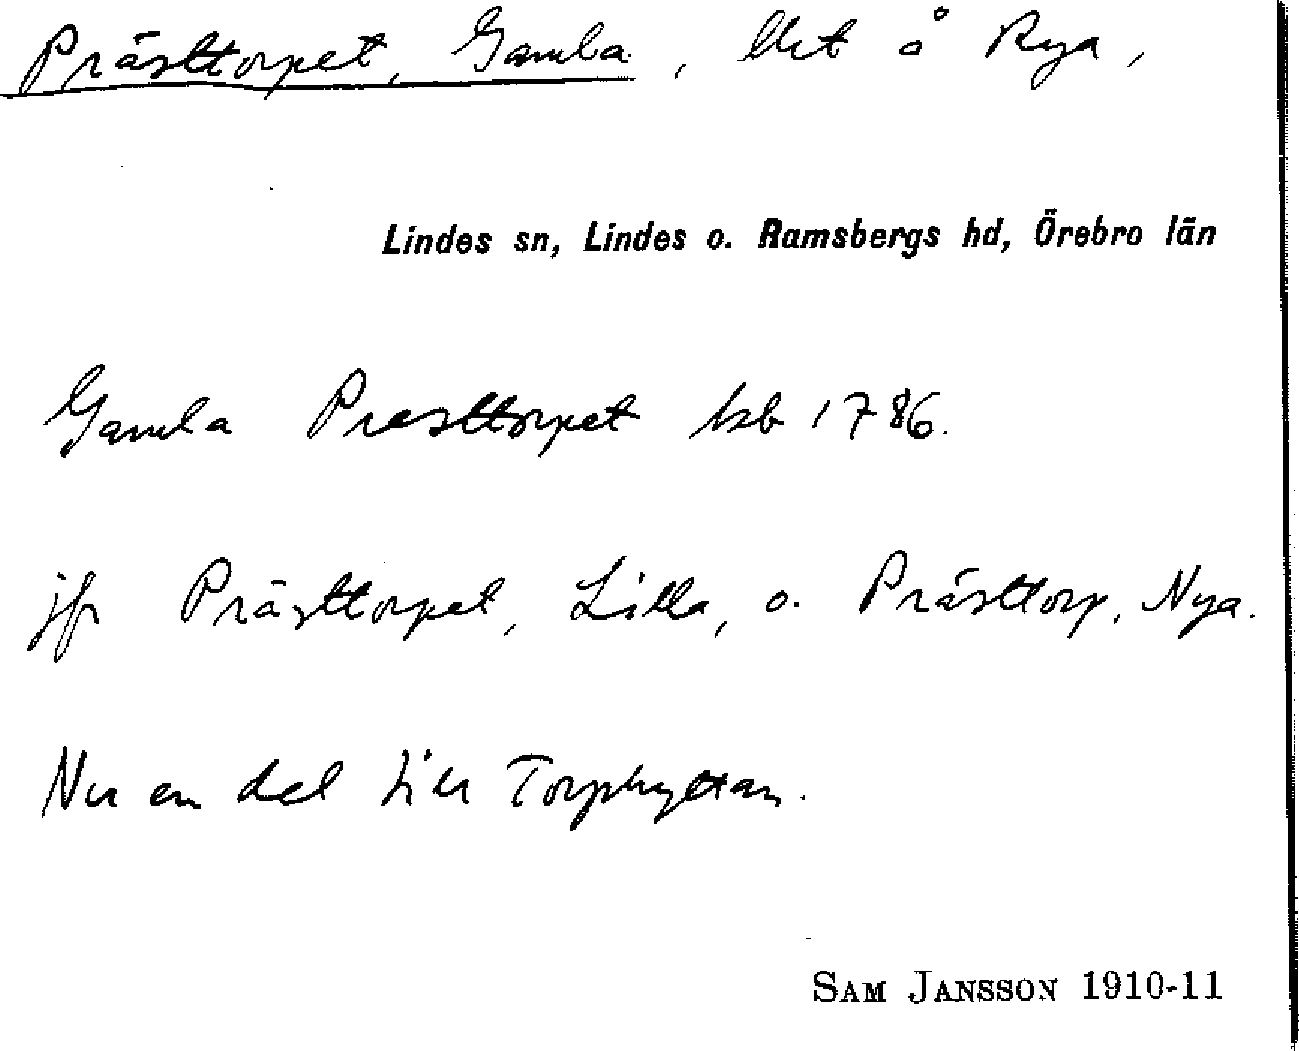 Prästtorpet, Gamla, lht å Rya,
Lindes sn, Lindes o. Ramsbergs hd, Örebro län
Gamla Prasttorpet kb 1786.
jfr Prästtorpet, Lilla, o. Prästtorp, Nya.
Nu en del till Torphyttan.
SAM JANSSON 1910-11